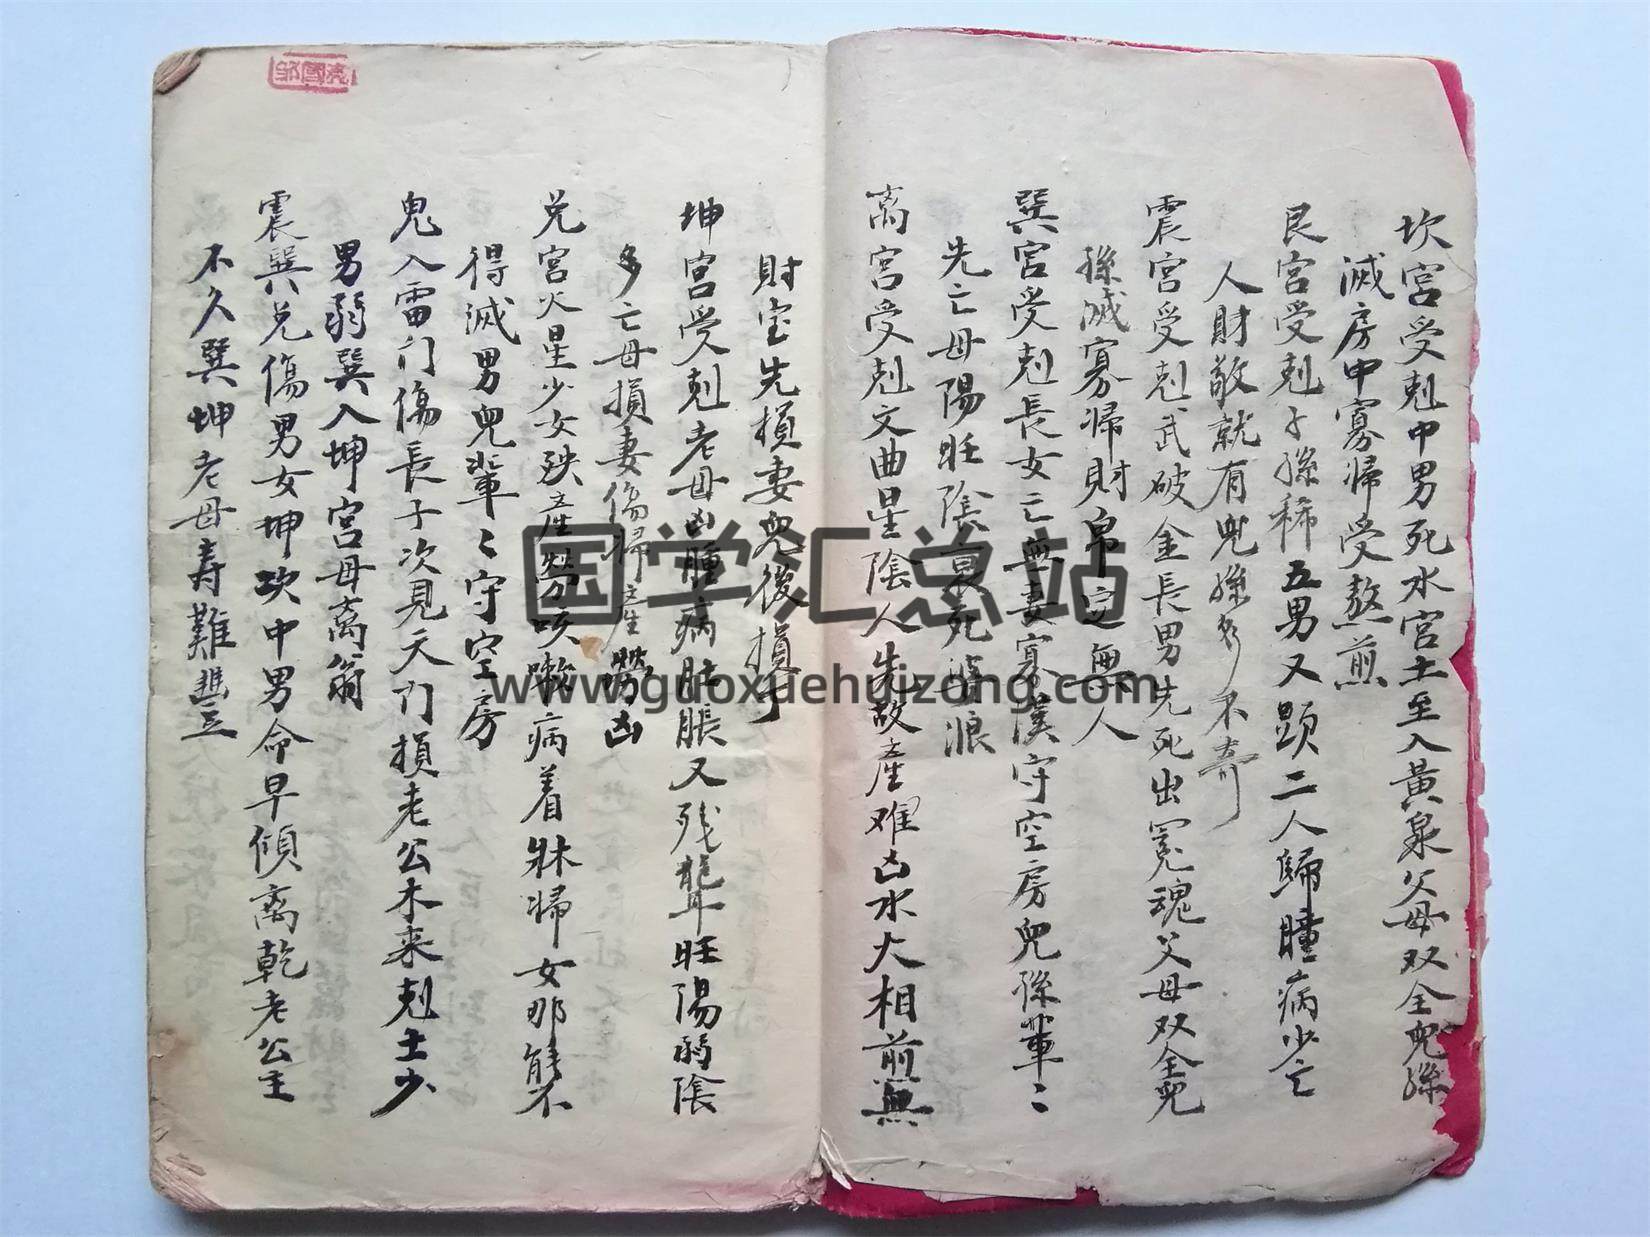 坎宮受剋中男死水宮土至入黃泉父母双全兒孫
滅房中寡婦受熬煎
艮宮受剋子孫稀五男又顕二人歸腫病少亡
人財敬就有兒孫多不奇
震宮受剋武破金長男先死出冤魂父母双全兒
孫滅寡婦財帛定無人
巽宮受剋長女亡無妻寡漢守空房兒孫輩〻
先亡母陽旺陰衰死浪
离宮受剋文曲星陰人先故產难凶水大相煎無
財宝先損妻兒後損丁
坤宮受剋老母凶腫病肚脹又残聾旺陽弱陰
多亡母損妻傷婦產癆凶
兌宮火星少女殃產癆咳嗽病着牀婦女那能不
得滅男兒輩〻守空房
鬼入雷门傷長子次見天门損老公木来剋土少
男弱巽入坤宮母离翁
震巽兌傷男女坤坎中男命早傾离乾老公主
不久巽坤老母寿難豊
国学汇总站
www.guoxuehuizong.com